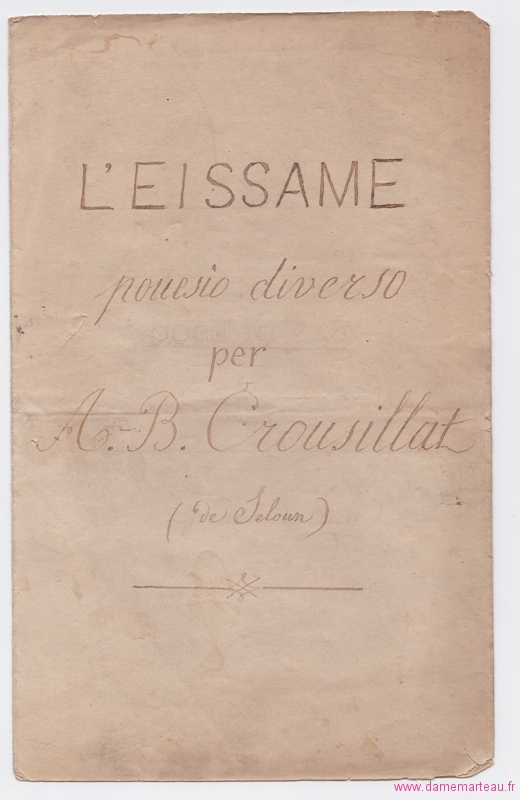 L'EISSAME
pouesio diverso
per
A. B. Crousillat
(de Seloun)
www.damemarteau.fr